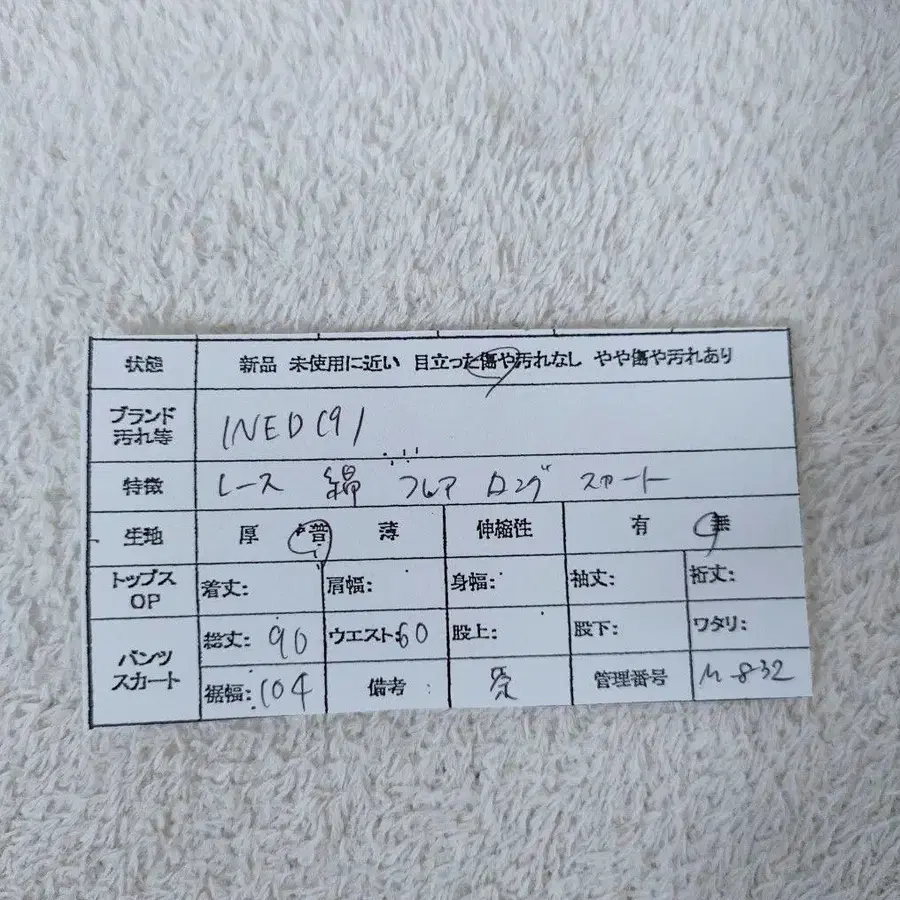 状態 新品 未使用に近い 目立った傷や汚れなし やや傷や汚れあり
ブランド
汚れ等 INED (9)
特徴 レース 綿 フレア ロング スカート
生地 厚 普 薄 伸縮性 有 無
トップス
OP 着丈: 肩幅: 身幅: 袖丈: 裄丈:
パンツ
スカート 総丈: 90 ウエスト:60 股上: 股下: ワタリ:
裾幅: 104 備考 管理番号 M-832